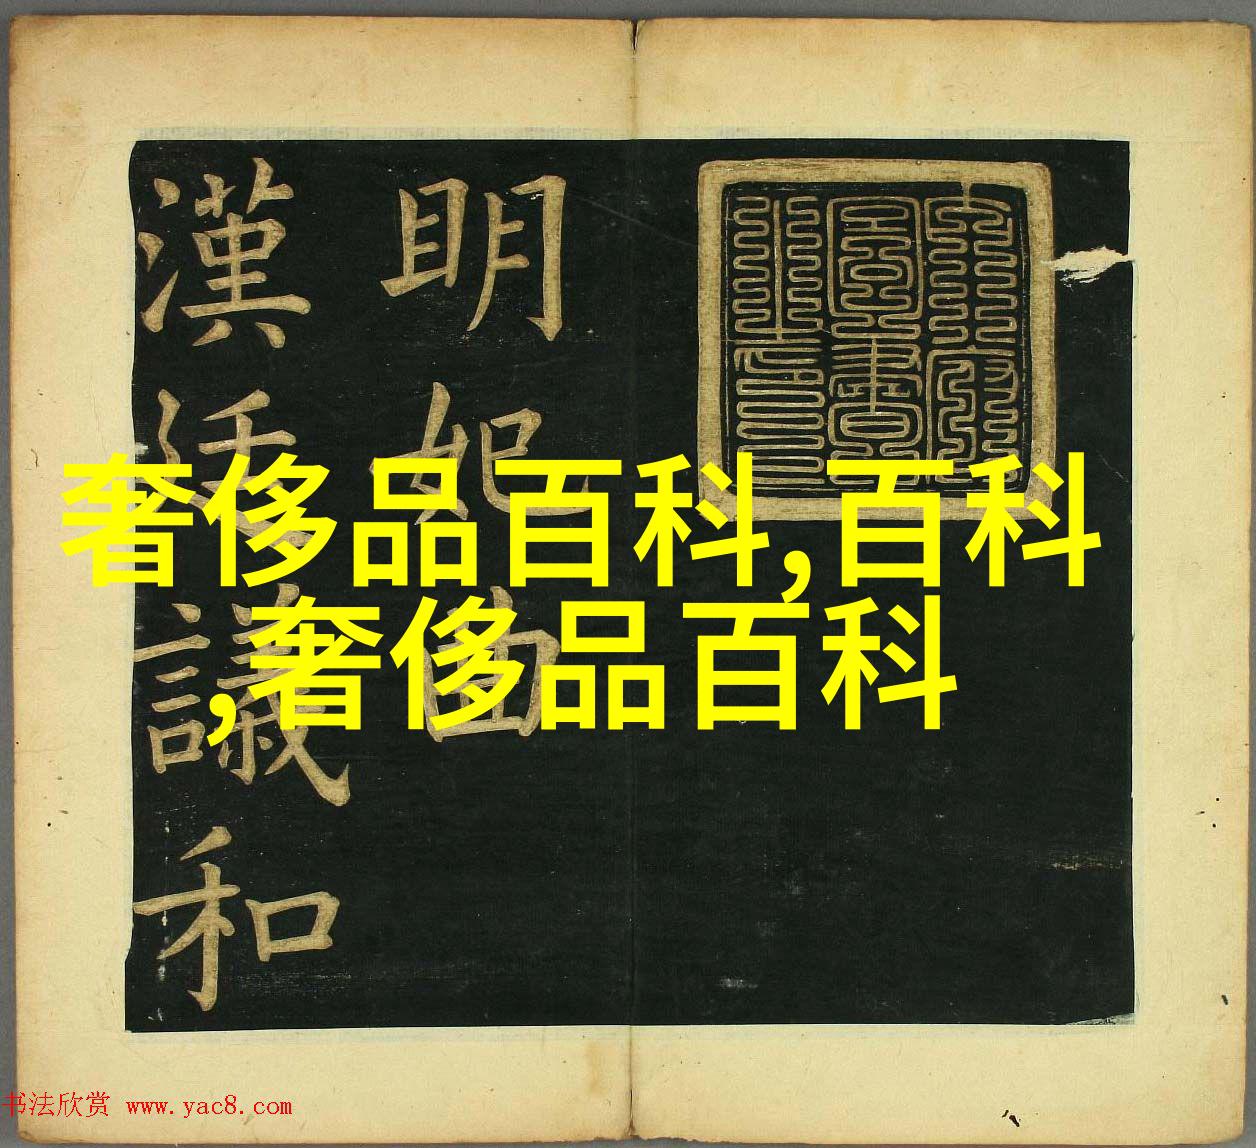 明妃曲
漢廷議和
奢侈品百科,百科
,奢侈品百科
书法欣赏 www.yac8.com